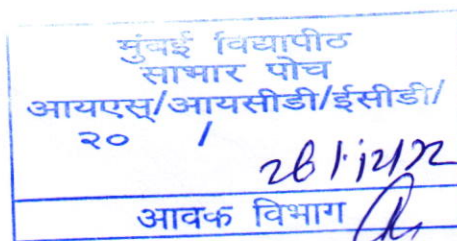 मुंबई विद्यापीठ
साभार पोच
आयएस्/आयसीडी/ईसीडी/
२० /
28/12/22
आवक विभाग